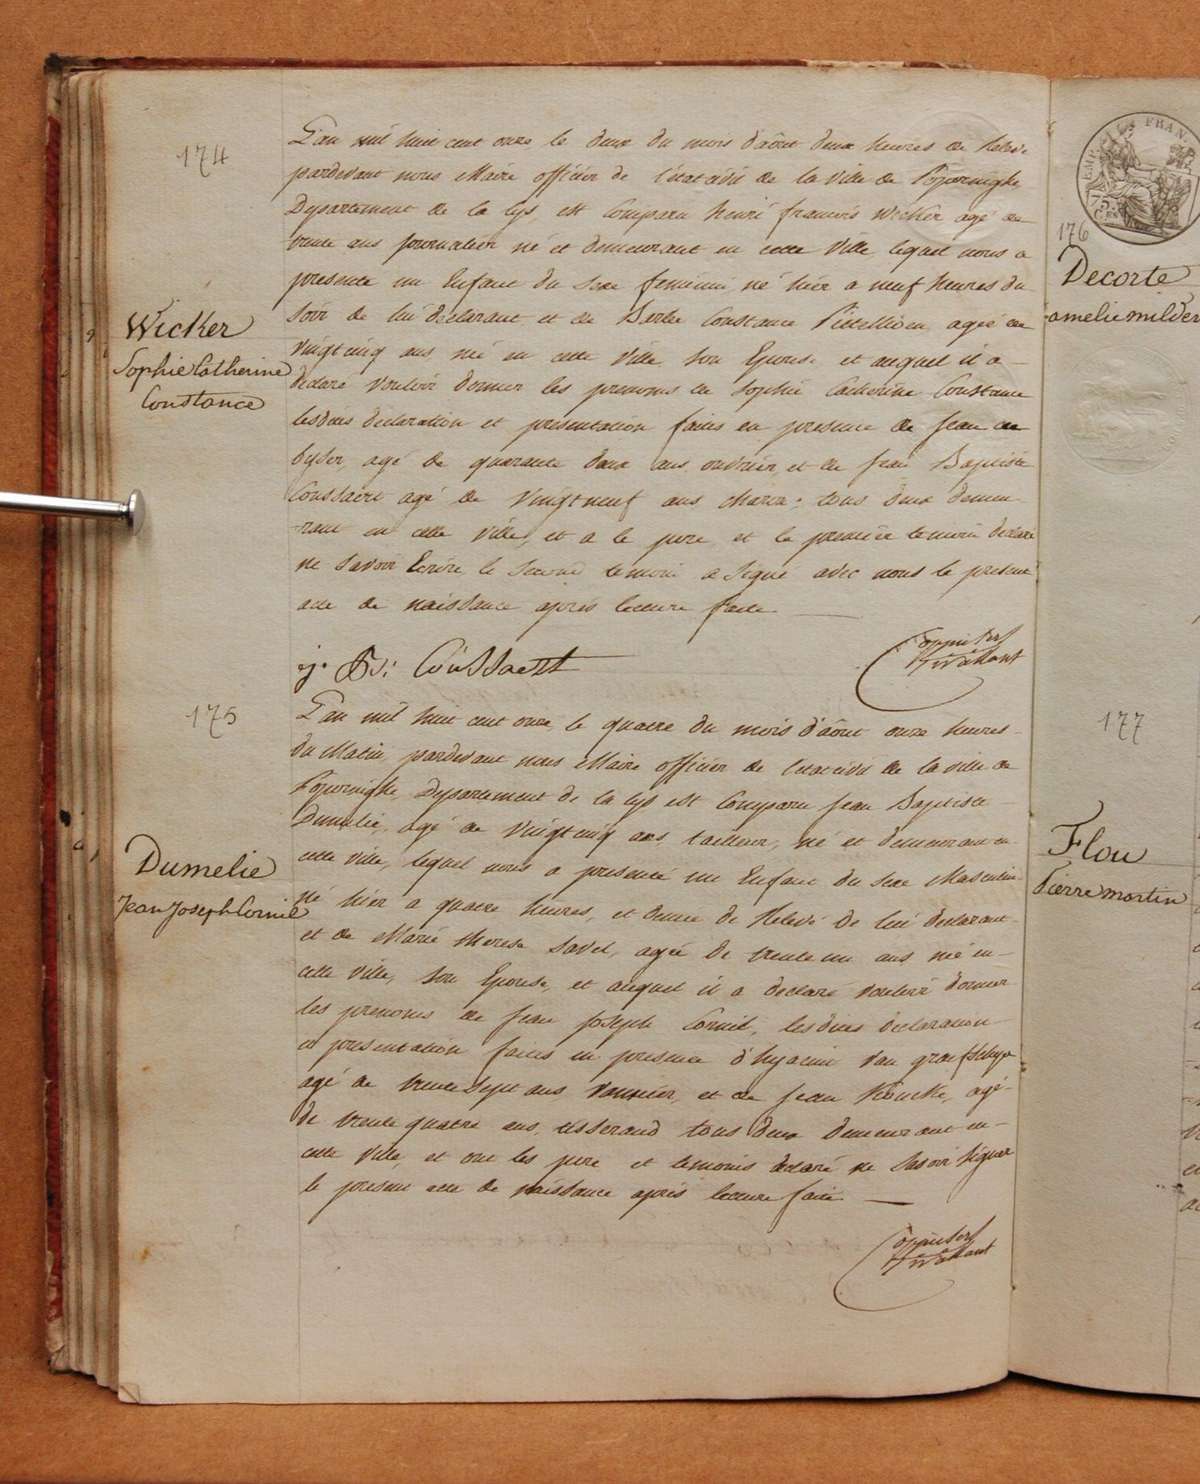 174
L'an mil huit cent onze le deux du mois d'aôut deux heures de Relevé
pardevant nous Maire officier de l'état civil de la ville de Poperinghe
Departement de la Lys, est Comparu henri francois Wicker agé de
trente ans Journalier né et demeurant en cette Ville lequel nous a
presenté un Enfant du Sexe feminin né hier a neuf heures du
Soir de lui declarant et de Barbe Constance agée de
vingtcinq ans né en cette Ville Son Epouse et auquel il a
declaré vouloir donner les prenoms de Sophie Catherine Constance
lesdites declaration et presentation faites en presence de Jean de
agé de quarante deux ans ouvrier et de Jean Baptiste
Coussaert agé de vingtneuf ans tous deux demeu-
-rant en cette ville, et a le pere et le premier temoin declaré
ne savoir Ecrire le Second temoin a Signé avec nous le present
acte de naissance après lecture faite
Wicker
Sophie Catherine
Constance
j. Bt: Coussaert
175
L'an mil huit cent onze, le quatre du mois d'aôut onze heures
du Matin, pardevant nous Maire officier de l'état civil de la ville de
Poperinghe, Departement de la Lys est Comparu Jean Baptiste
Dumelie, agé de vingtcinq ans, né et demeurant en
cette ville, lequel nous a presenté un Enfant du Sexe Masculin
né hier a quatre heures, et demie de Relevé de lui declarant
et de Marie therese Savel, agée de trente un ans né en
cette ville, Son Epouse, et auquel il a declaré vouloir donner
les prenoms de Jean Joseph Cornil, lesdites declaration
et presentation faites en presence d'hyacint Van
agé de trente Sept ans et de Jean agé
de trente quatre ans, tisserand tous deux demeurant en
cette ville, et ont les pere et temoins declaré ne Savoir Signer
le present acte de naissance après lecture faite
Dumelie
Jean Joseph Cornil
176
Decorte
amelie milder
177
Flou
Pierre martin